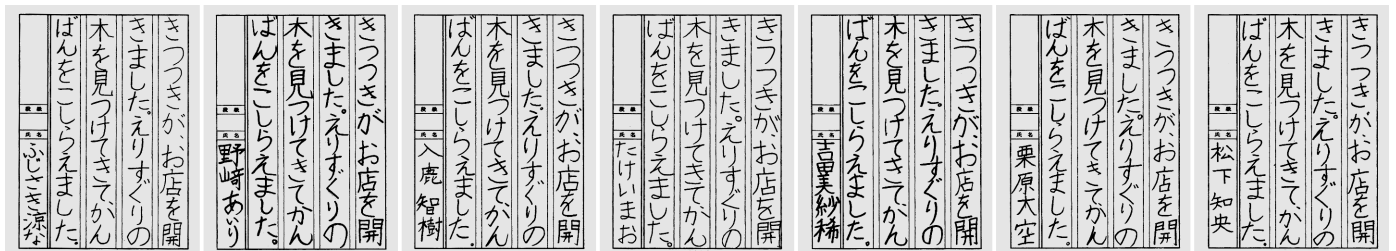 きつつきが、お店を開
きました。えりすぐりの
木を見つけてきて、かん
ばんをこしらえました。
段級
氏名
ふじさき涼な
きつつきが、お店を開
きました。えりすぐりの
木を見つけてきて、かん
ばんをこしらえました。
段級
氏名
野崎あいり
きつつきが、お店を開
きました。えりすぐりの
木を見つけてきて、かん
ばんをこしらえました。
段級
氏名
入鹿智樹
きつつきが、お店を開
きました。えりすぐりの
木を見つけてきて、かん
ばんをこしらえました。
段級
氏名
たけいまお
きつつきが、お店を開
きました。えりすぐりの
木を見つけてきて、かん
ばんをこしらえました。
段級
氏名
きつつきが、お店を開
きました。えりすぐりの
木を見つけてきて、かん
ばんをこしらえました。
段級
氏名
栗原大空
きつつきが、お店を開
きました。えりすぐりの
木を見つけてきて、かん
ばんをこしらえました。
段級
氏名
松下知央